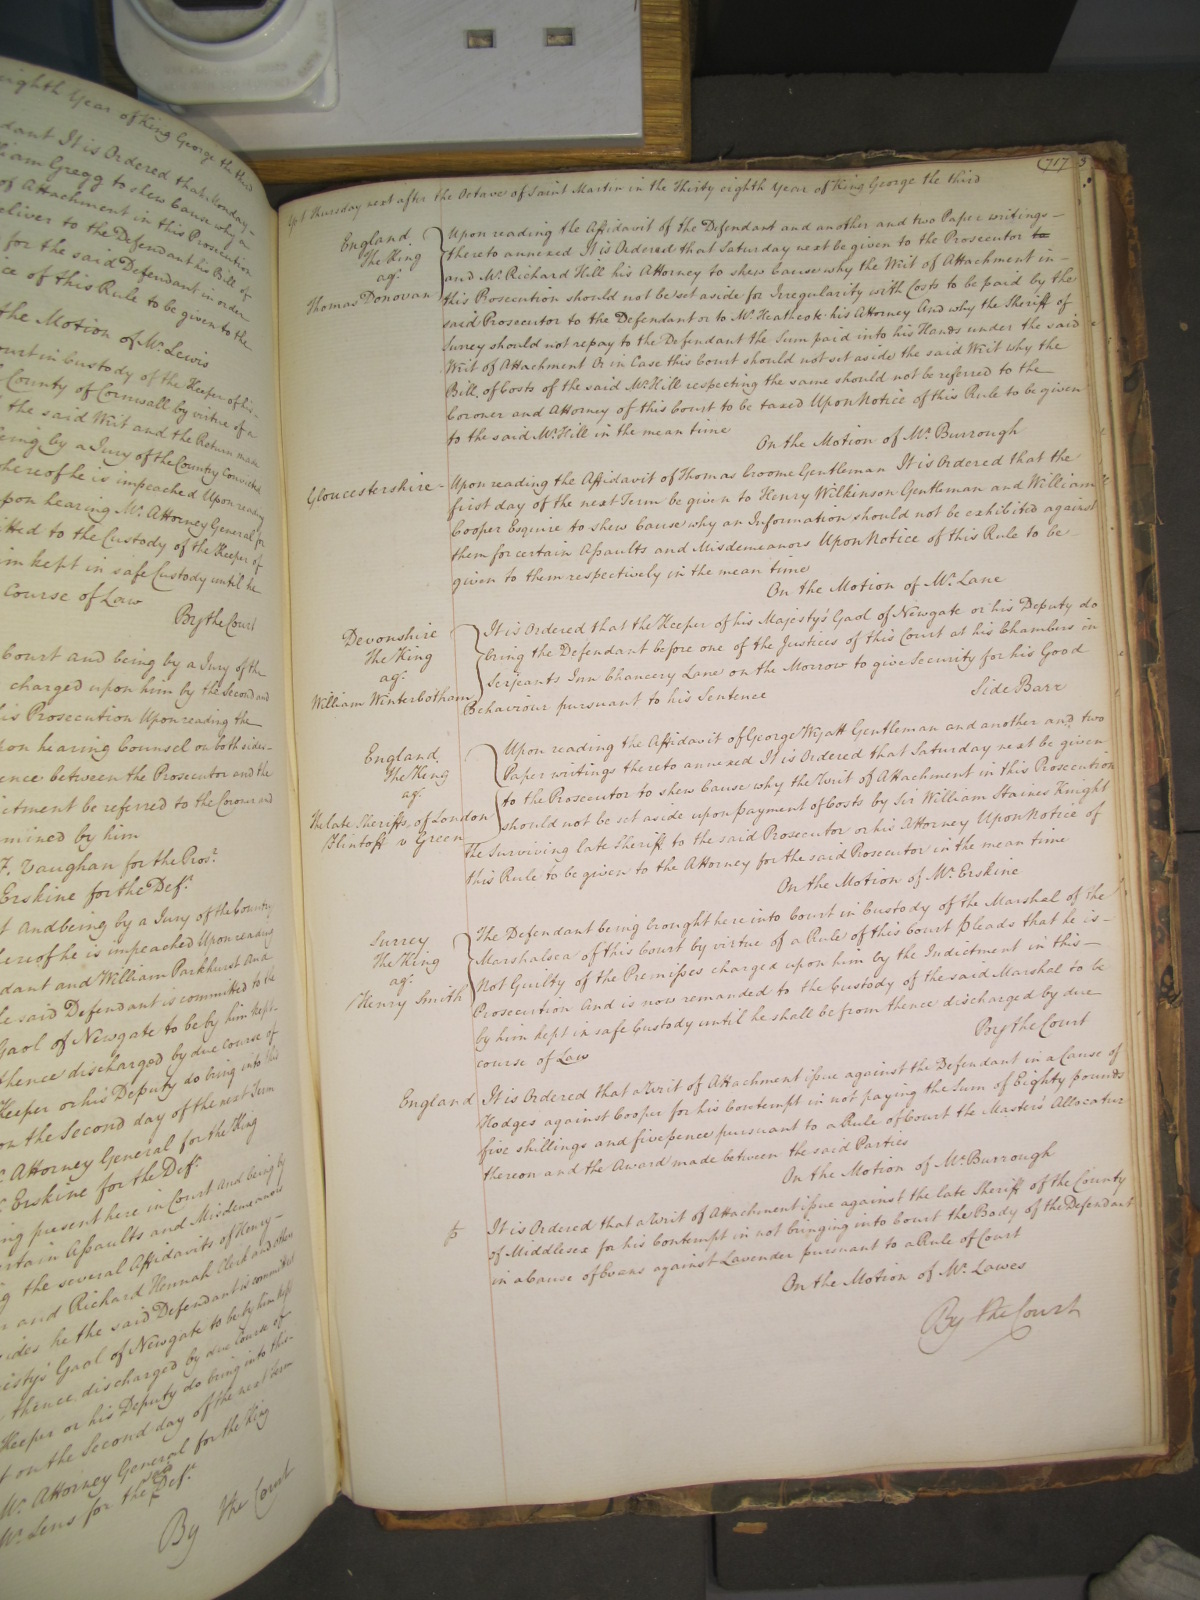 eighth Year of King George the third
dant It is Ordered that Monday
liam Gregg to shew Cause why a
of Attachment in this Prosecution
eliver to the Defendant his Bill of
for the said Defendant in order
ice of this Rule to be given to the
the Motion of Mr. Lewis
ourt in Custody of the Keeper of his
County of Cornwall by virtue of a
the said Writ and the Return made
eing by a Jury of the Country Convicted
hereof he is impeached Upon reading
pon hearing Mr. Attorney General for
itted to the Custody of the Keeper of
im kept in safe Custody until he
Course of Law
By the Court
Court and being by a Jury of the
charged upon him by the Second and
is Prosecution Upon reading the
on hearing Counsel on both sides
ence between the Prosecutor and the
ictment be referred to the Coroner and
mined by him
F. Vaughan for the Prosr.
Erskine for the Deft.
t and being by a Jury of the Country
hereof he is impeached Upon reading
dant and William Parkhurst And
he said Defendant is committed to the
Gaol of Newgate to be by him kept
thence discharged by due course of
Keeper or his Deputy do bring into this
on the Second day of the next Term
Attorney General for the King
Erskine for the Deft.
ng present here in Court and being by
rtain Assaults and Misdemeanors
g the several Affidavits of Henry
r and Richard Hennah Clerk and others
ides he the said Defendant is committed
esty's Gaol of Newgate to be by him kept
thence discharged by due Course of
Keeper or his Deputy do bring into this
t on the Second day of the next term
Mr. Attorney General for the King
Mr. Lens for the Deft.
By the Court
717
Yet Thursday next after the Octave of Saint Martin in the Thirty eighth Year of King George the third
England
The King
agt.
Thomas Donovan
Upon reading the Affidavit of the Defendant and another and two Paper writings
thereto annexed It is Ordered that Saturday next be given to the Prosecutor to
and Mr. Richard Hill his Attorney to shew Cause why the Writ of Attachment in
this Prosecution should not be set aside for Irregularity with Costs to be paid by the
said Prosecutor to the Defendant or to Mr. Heathcote his Attorney And why the Sheriff of
Surrey should not repay to the Defendant the Sum paid into his Hands under the said
Writ of Attachment Or in Case this Court should not set aside the said Writ why the
Bill of Costs of the said Mr. Hill respecting the same should not be referred to the
Coroner and Attorney of this Court to be taxed Upon Notice of this Rule to be given
to the said Mr. Hill in the mean time
On the Motion of Mr. Burrough
Gloucestershire
Upon reading the Affidavit of Thomas Croome Gentleman It is Ordered that the
first day of the next Term be given to Henry Wilkinson Gentleman and William
Cooper Esquire to shew Cause why an Information should not be exhibited against
them for certain Assaults and Misdemeanors Upon Notice of this Rule to be
given to them respectively in the mean time
On the Motion of Mr. Lane
Devonshire
The King
agt.
William Winterbotham
It is Ordered that the Keeper of his Majesty's Gaol of Newgate or his Deputy do
bring the Defendant before one of the Justices of this Court at his Chambers in
Serjeants Inn Chancery Lane on the Morrow to give Security for his Good
Behaviour pursuant to his Sentence
Side Barr
England
The King
agt.
The late Sheriffs of London
Clintoff v Green
Upon reading the Affidavit of George Wyatt Gentleman and another and two
Paper writings thereto annexed It is Ordered that Saturday next be given
to the Prosecutor to shew Cause why the Writ of Attachment in this Prosecution
should not be set aside upon payment of Costs by Sir William Staines Knight
The Surviving late Sheriff to the said Prosecutor or his Attorney Upon Notice of
this Rule to be given to the Attorney for the said Prosecutor in the mean time
On the Motion of Mr. Erskine
Surrey
The King
agt.
Henry Smith
The Defendant being brought here into Court in Custody of the Marshal of the
Marshalsea of this Court by virtue of a Rule of this Court pleads that he is
Not Guilty of the Premisses charged upon him by the Indictment in this
Prosecution And is now remanded to the Custody of the said Marshal to be
by him kept in safe Custody until he shall be from thence discharged by due
course of Law
By the Court
England
It is Ordered that a Writ of Attachment issue against the Defendant in a Cause of
Hodges against Cooper for his Contempt in not paying the Sum of Eighty pounds
five shillings and five pence pursuant to a Rule of Court the Master's Allocatur
thereon and the Award made between the said Parties
On the Motion of Mr. Burrough
It is Ordered that a Writ of Attachment issue against the late Sheriff of the County
of Middlesex for his Contempt in not bringing into Court the Body of the Defendant
in a Cause of Evans against Lavender pursuant to a Rule of Court
On the Motion of Mr. Lawes
By the Court